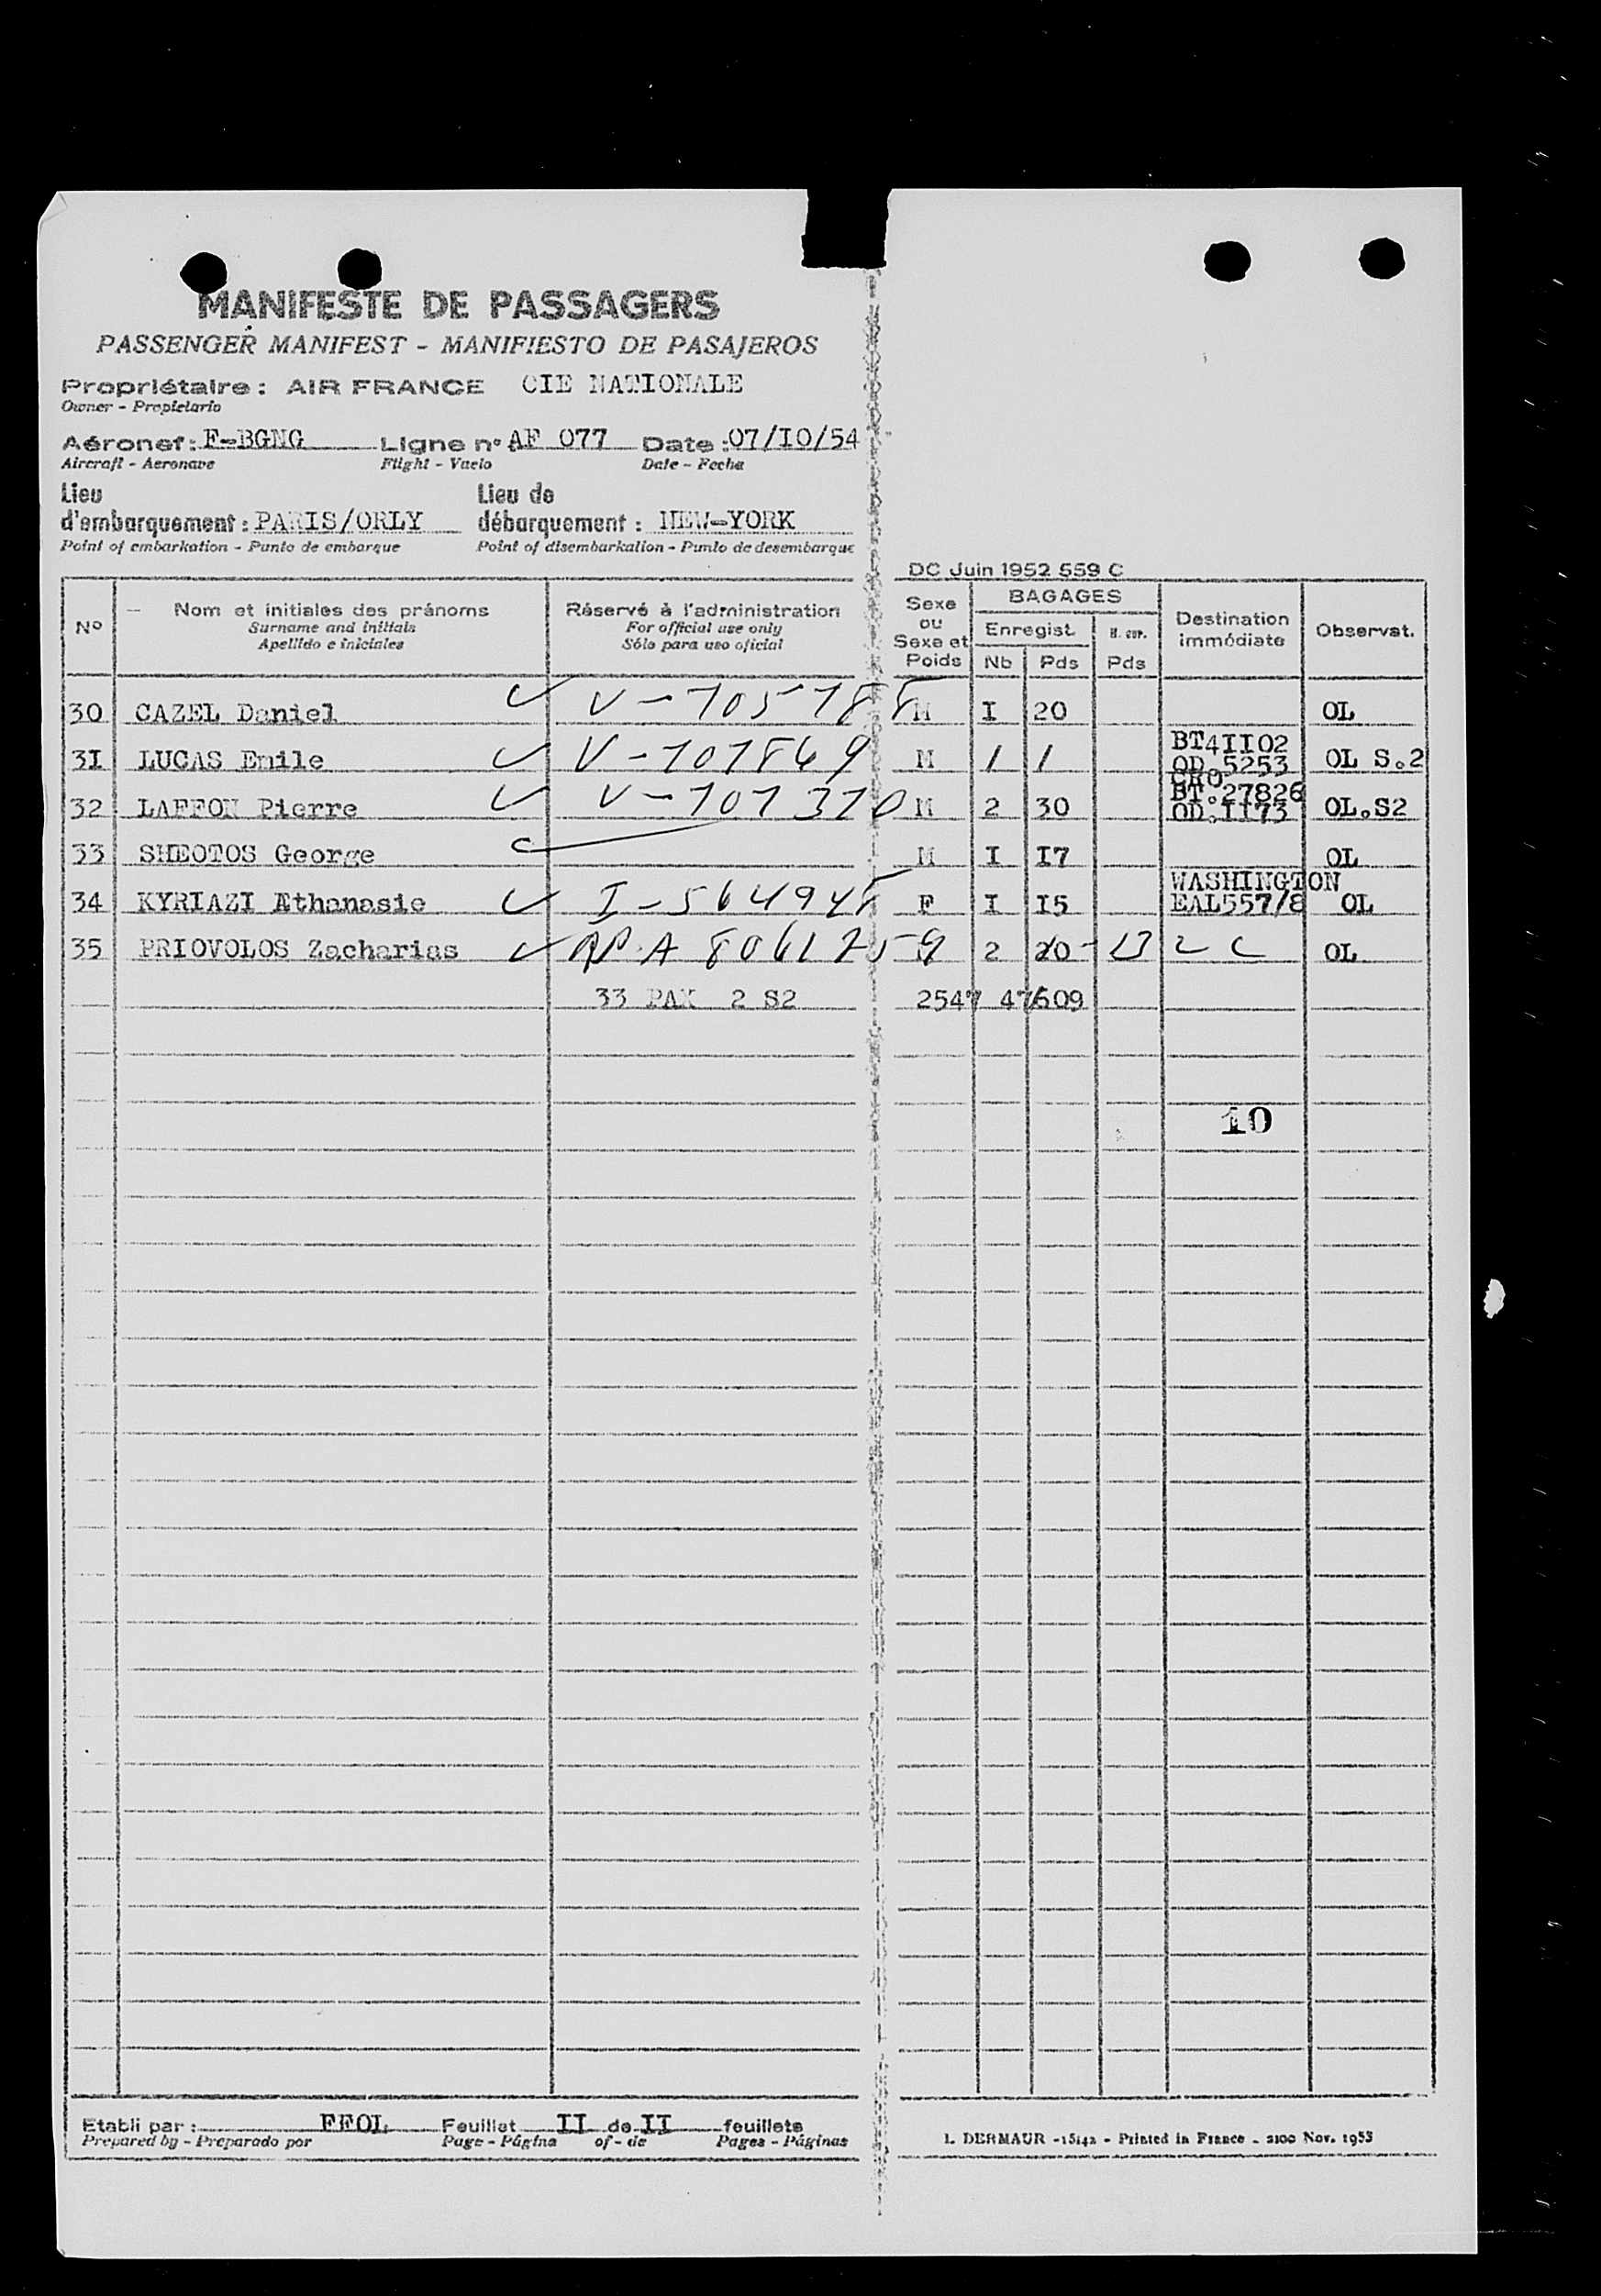 MANIFESTE DE PASSAGERS
PASSENGER MANIFEST - MANIFIESTO DE PASAJEROS
Propriétaire : AIR FRANCE CIE NATIONALE
Owner - Propietario
Aéronef : F-BGNG Ligne n° AF 077 Date : 07/IO/54
Aircraft - Aeronave Flight - Vuelo Date - Fecha
Lieu d'embarquement : PARIS/ORLY Lieu de débarquement : NEW-YORK
Point of embarkation - Punto de embarque Point of disembarkation - Punto de desembarque
DC Juin 1952 559 C
N° Nom et initiales des prénoms Réservé à l'administration Sexe ou Sexe et Poids BAGAGES Destination immédiate Observat.
Surname and initials For official use only Enregist.
Apellido e iniciales Sólo para uso oficial Nb Pds Pds
30 CAZEL Daniel V-105788 M I 20 OL
3I LUCAS Emile V-101869 M / / BT4II02 OD 5253 OL S.2
32 LAFFON Pierre V-101310 M 2 30 CRO BT.27826 OD.II73 OL.S2
33 SHEOTOS George M I I7 OL
34 KYRIAZI Athanasie I-564948 F I I5 WASHINGTON EAL557/8 OL
35 PRIOVOLOS Zacharias A 8061259 2 20 OL
33 PAX 2 S2 2547 47 609
10
Etabli par : FFOL Feuillet II de II feuillets
Prepared by - Preparado por Page - Página of - de Pages - Páginas
L. DERMAUR - 15142 - Printed in France - 2100 Nov. 1953